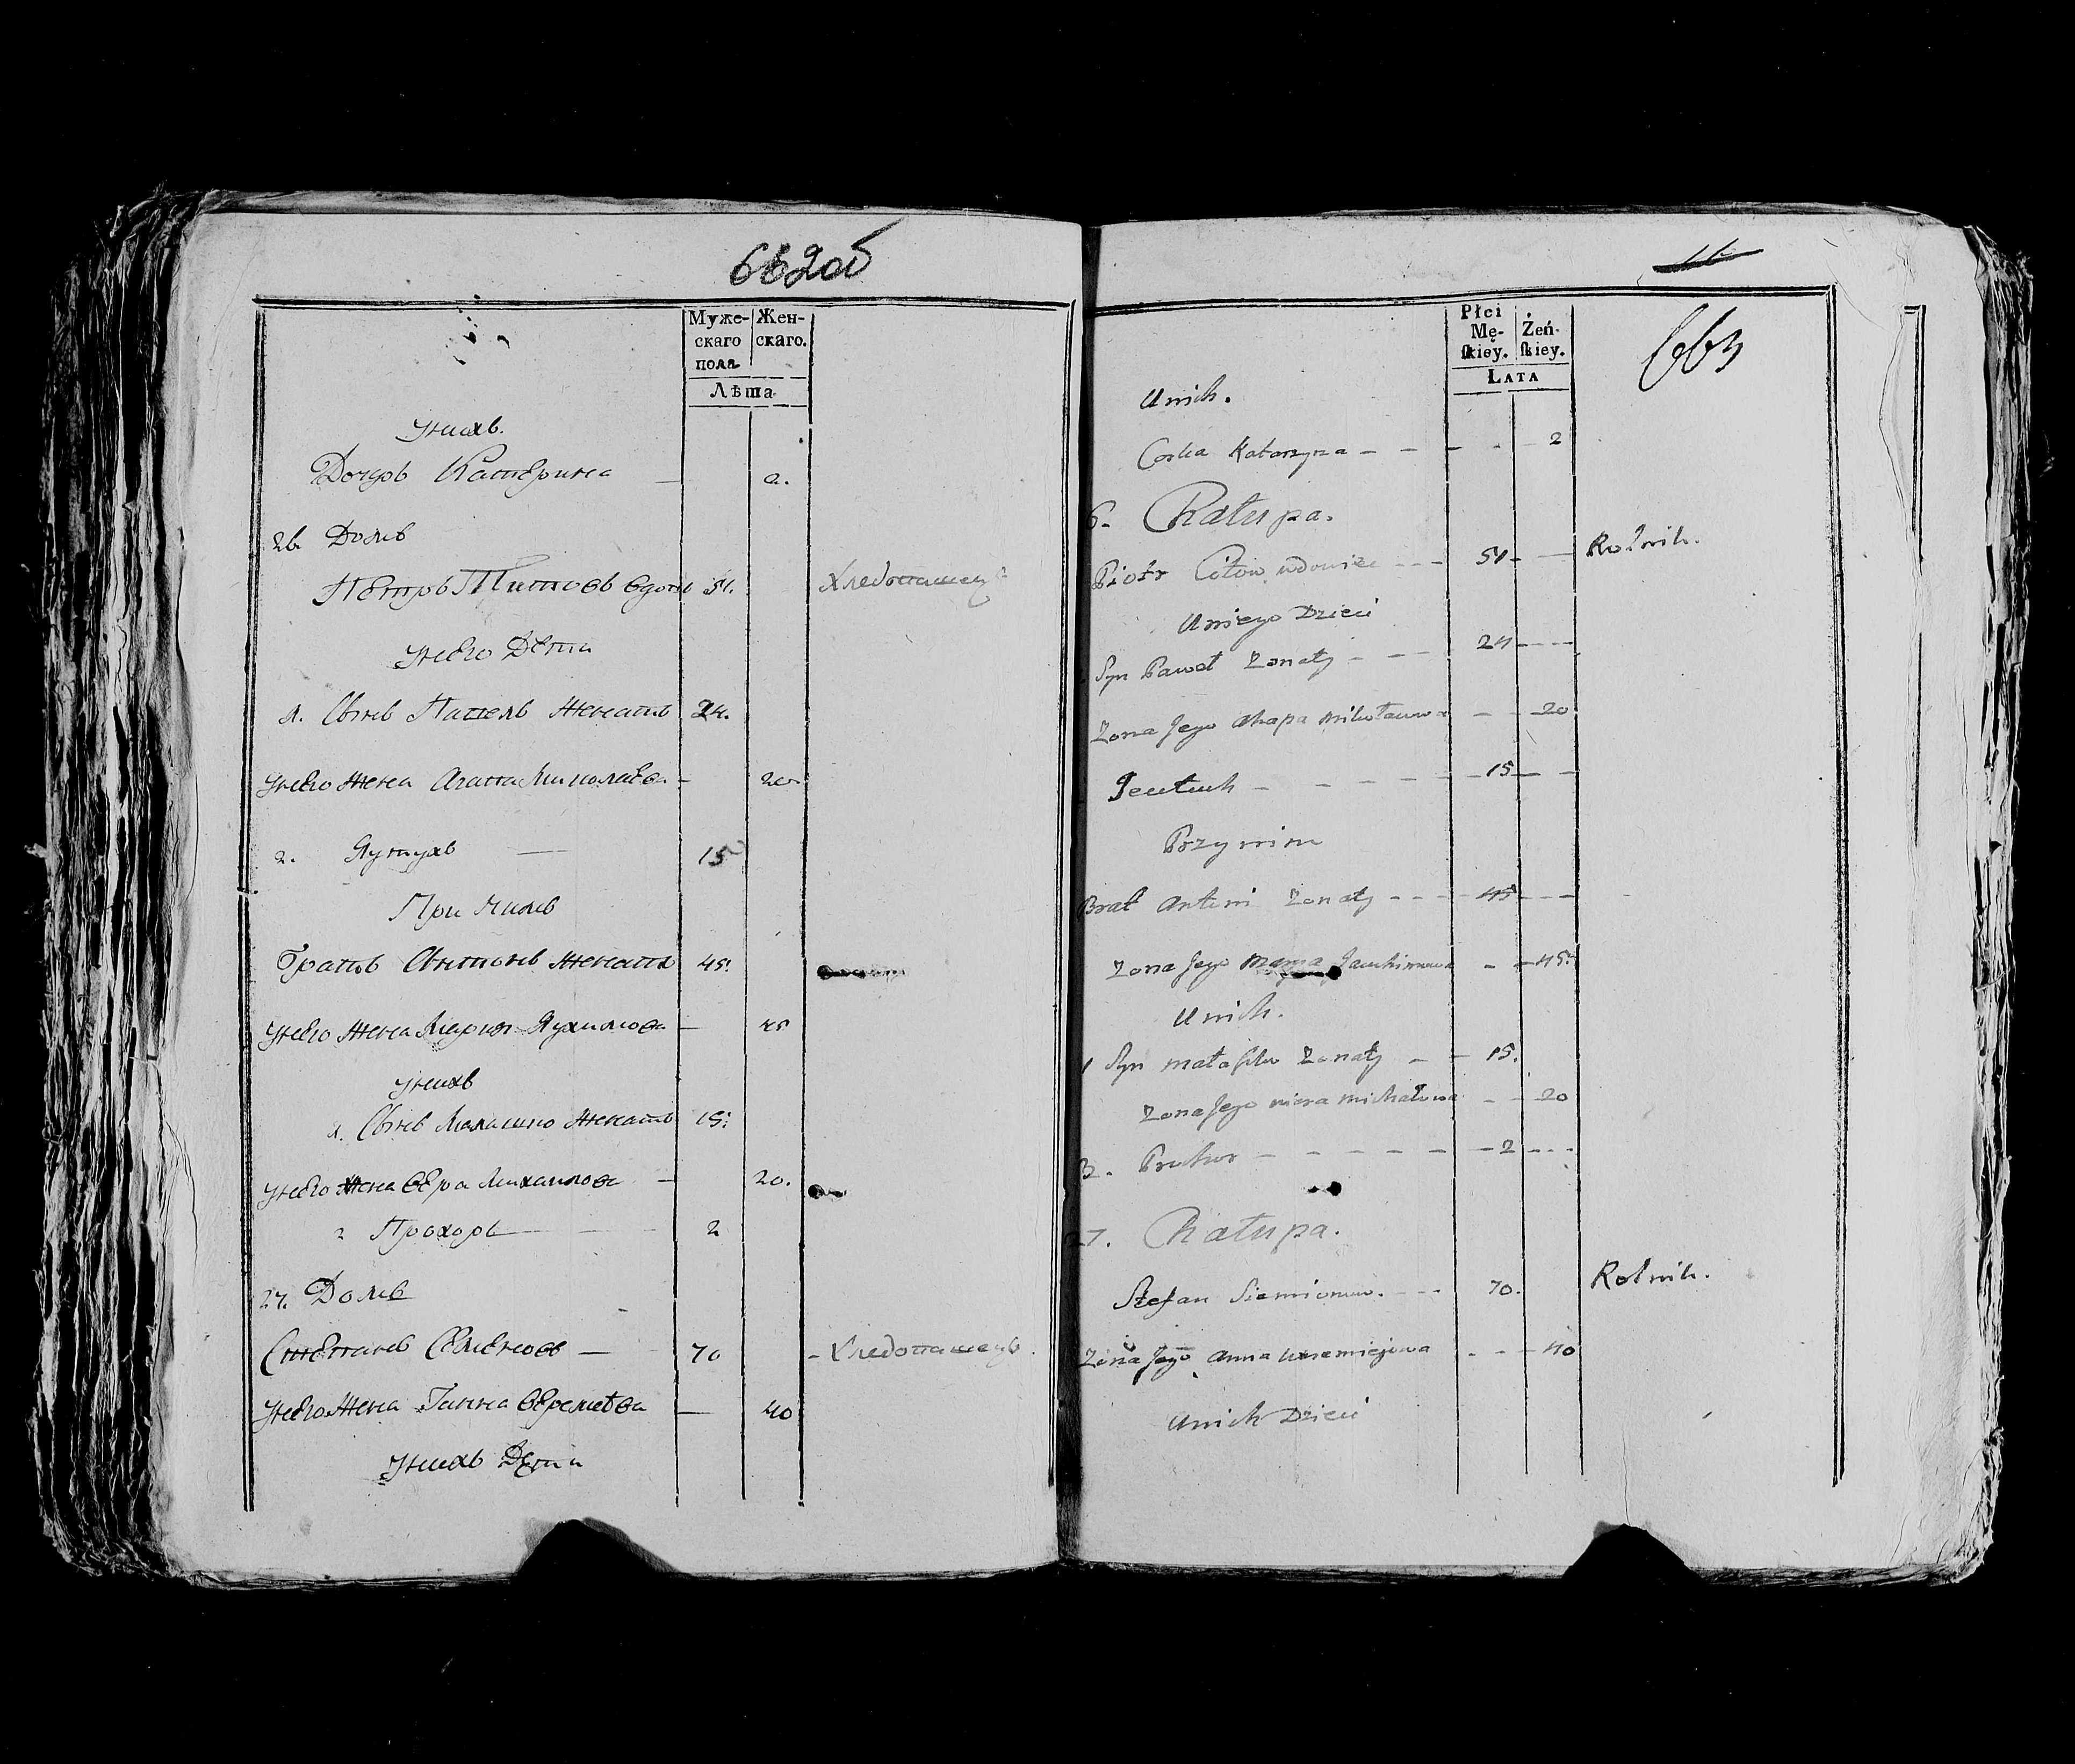 662об
Муже- Жен-
скаго скаго.
пола
Лѣта
Унихъ.
Дочеръ Катерина — 2.
26. Домъ
Петръ Титовъ вдовъ 51. Хлебопашецъ
Унего Дети
1. Сынъ Павелъ Женатъ 24.
Унего Жена Агапа Миколаева - 20
2. Яутухъ — 15
При Нимъ
Братъ Антонъ Женатъ 45.
Унего Жена Мария Яухимова — 45
Унихъ
1. Сынъ Малашко Женатъ 15.
Унего Жена Вера Михаилова — 20.
2 Прохоръ — 2
27. Домъ
Степанъ Семеновъ — 70 - Хлебопашецъ.
Унего Жена Ганна Еремеева — 40
Унихъ Дети
11
663
Płci
Mę- Żeń-
ſkiey. ſkiey.
LATA
Unich.
Corka Katarzyna - - - - 2
6. Chałupa.
Piotr Citow wdowiec - - - 51 - Rolnik.
Uniego Dzieci
Syn Paweł Zonaty - - - 24 - - -
Zona Jego Ahapa Mikołaiowa - - 20
Jeutuch - - - - - 15 - -
Przy nim
Brat Antoni Zonaty - - - 45 - - -
Zona Jego Marya Jauchimowa - - 45.
Unich.
1 Syn Małaszko Zonaty - - 15.
Zona Jego Wiera Michałowa - - 20
2. Prochor - - - - - - 2 - - -
27. Chałupa.
Stefan Siemionow. - - - 70. Rolnik.
Zona Jego Anna - - - 40
Unich Dzieci